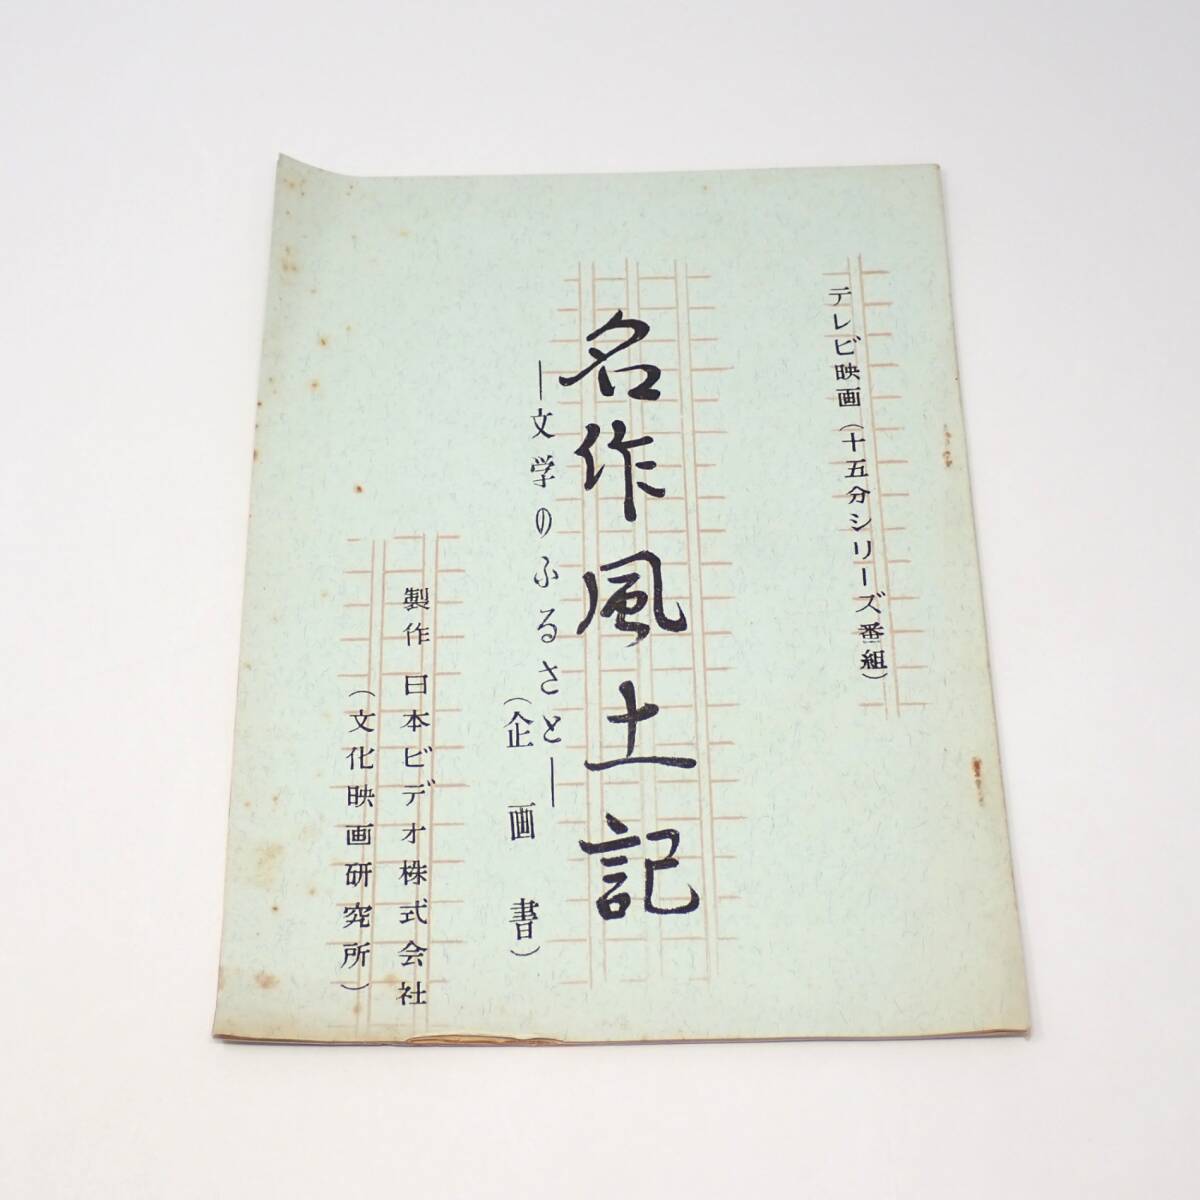 テレビ映画(十五分シリーズ番組)
名作風土記
―文学のふるさと―
(企画書)
製作 日本ビデオ株式会社
(文化映画研究所)